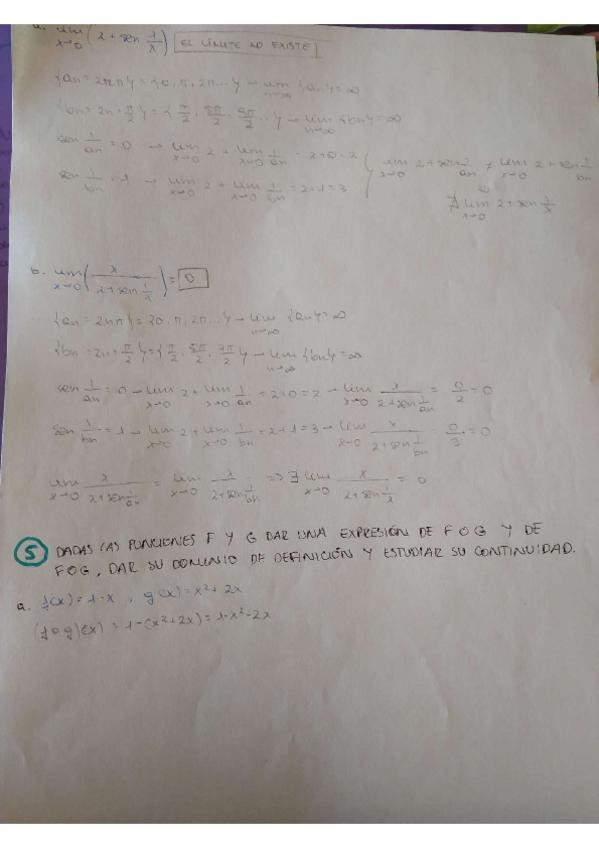 a. lim x→0 (2 + sen 1/x) EL LÍMITE NO EXISTE
{an = 2πn} = {0, π, 2π...} → lim n→∞ {an} = ∞
{bn = 2n + π/2} = {π/2, 5π/2, ...} → lim n→∞ {bn} = ∞
sen 1/an = 0 → lim x→0 2 + lim x→0 1/an = 2+0 = 2
sen 1/bn = 1 → lim x→0 2 + lim x→0 1/bn = 2+1 = 3
lim x→0 2 + sen 1/an ≠ lim x→0 2 + sen 1/bn
∄ lim x→0 2 + sen 1/x
b. lim x→0 (x / (2 + sen 1/x)) = 0
{an = 2nπ} = {0, π, 2π...} → lim n→∞ {an} = ∞
{bn = 2n + π/2} = {π/2, 5π/2, ...} → lim n→∞ {bn} = ∞
sen 1/an = 0 → lim x→0 2 + lim x→0 1/an = 2+0 = 2 → lim x→0 x / (2 + sen 1/an) = 0/2 = 0
sen 1/bn = 1 → lim x→0 2 + lim x→0 1/bn = 2+1 = 3 → lim x→0 x / (2 + sen 1/bn) = 0/3 = 0
lim x→0 x / (2 + sen 1/an) = lim x→0 x / (2 + sen 1/bn) => ∃ lim x→0 x / (2 + sen 1/x) = 0
5 DADAS LAS FUNCIONES F Y G DAR UNA EXPRESIÓN DE F O G Y DE
FOG, DAR SU DOMINIO DE DEFINICIÓN Y ESTUDIAR SU CONTINUIDAD.
a. f(x) = 1-x, g(x) = x²+2x
(f o g)(x) = 1-(x²+2x) = 1-x²-2x